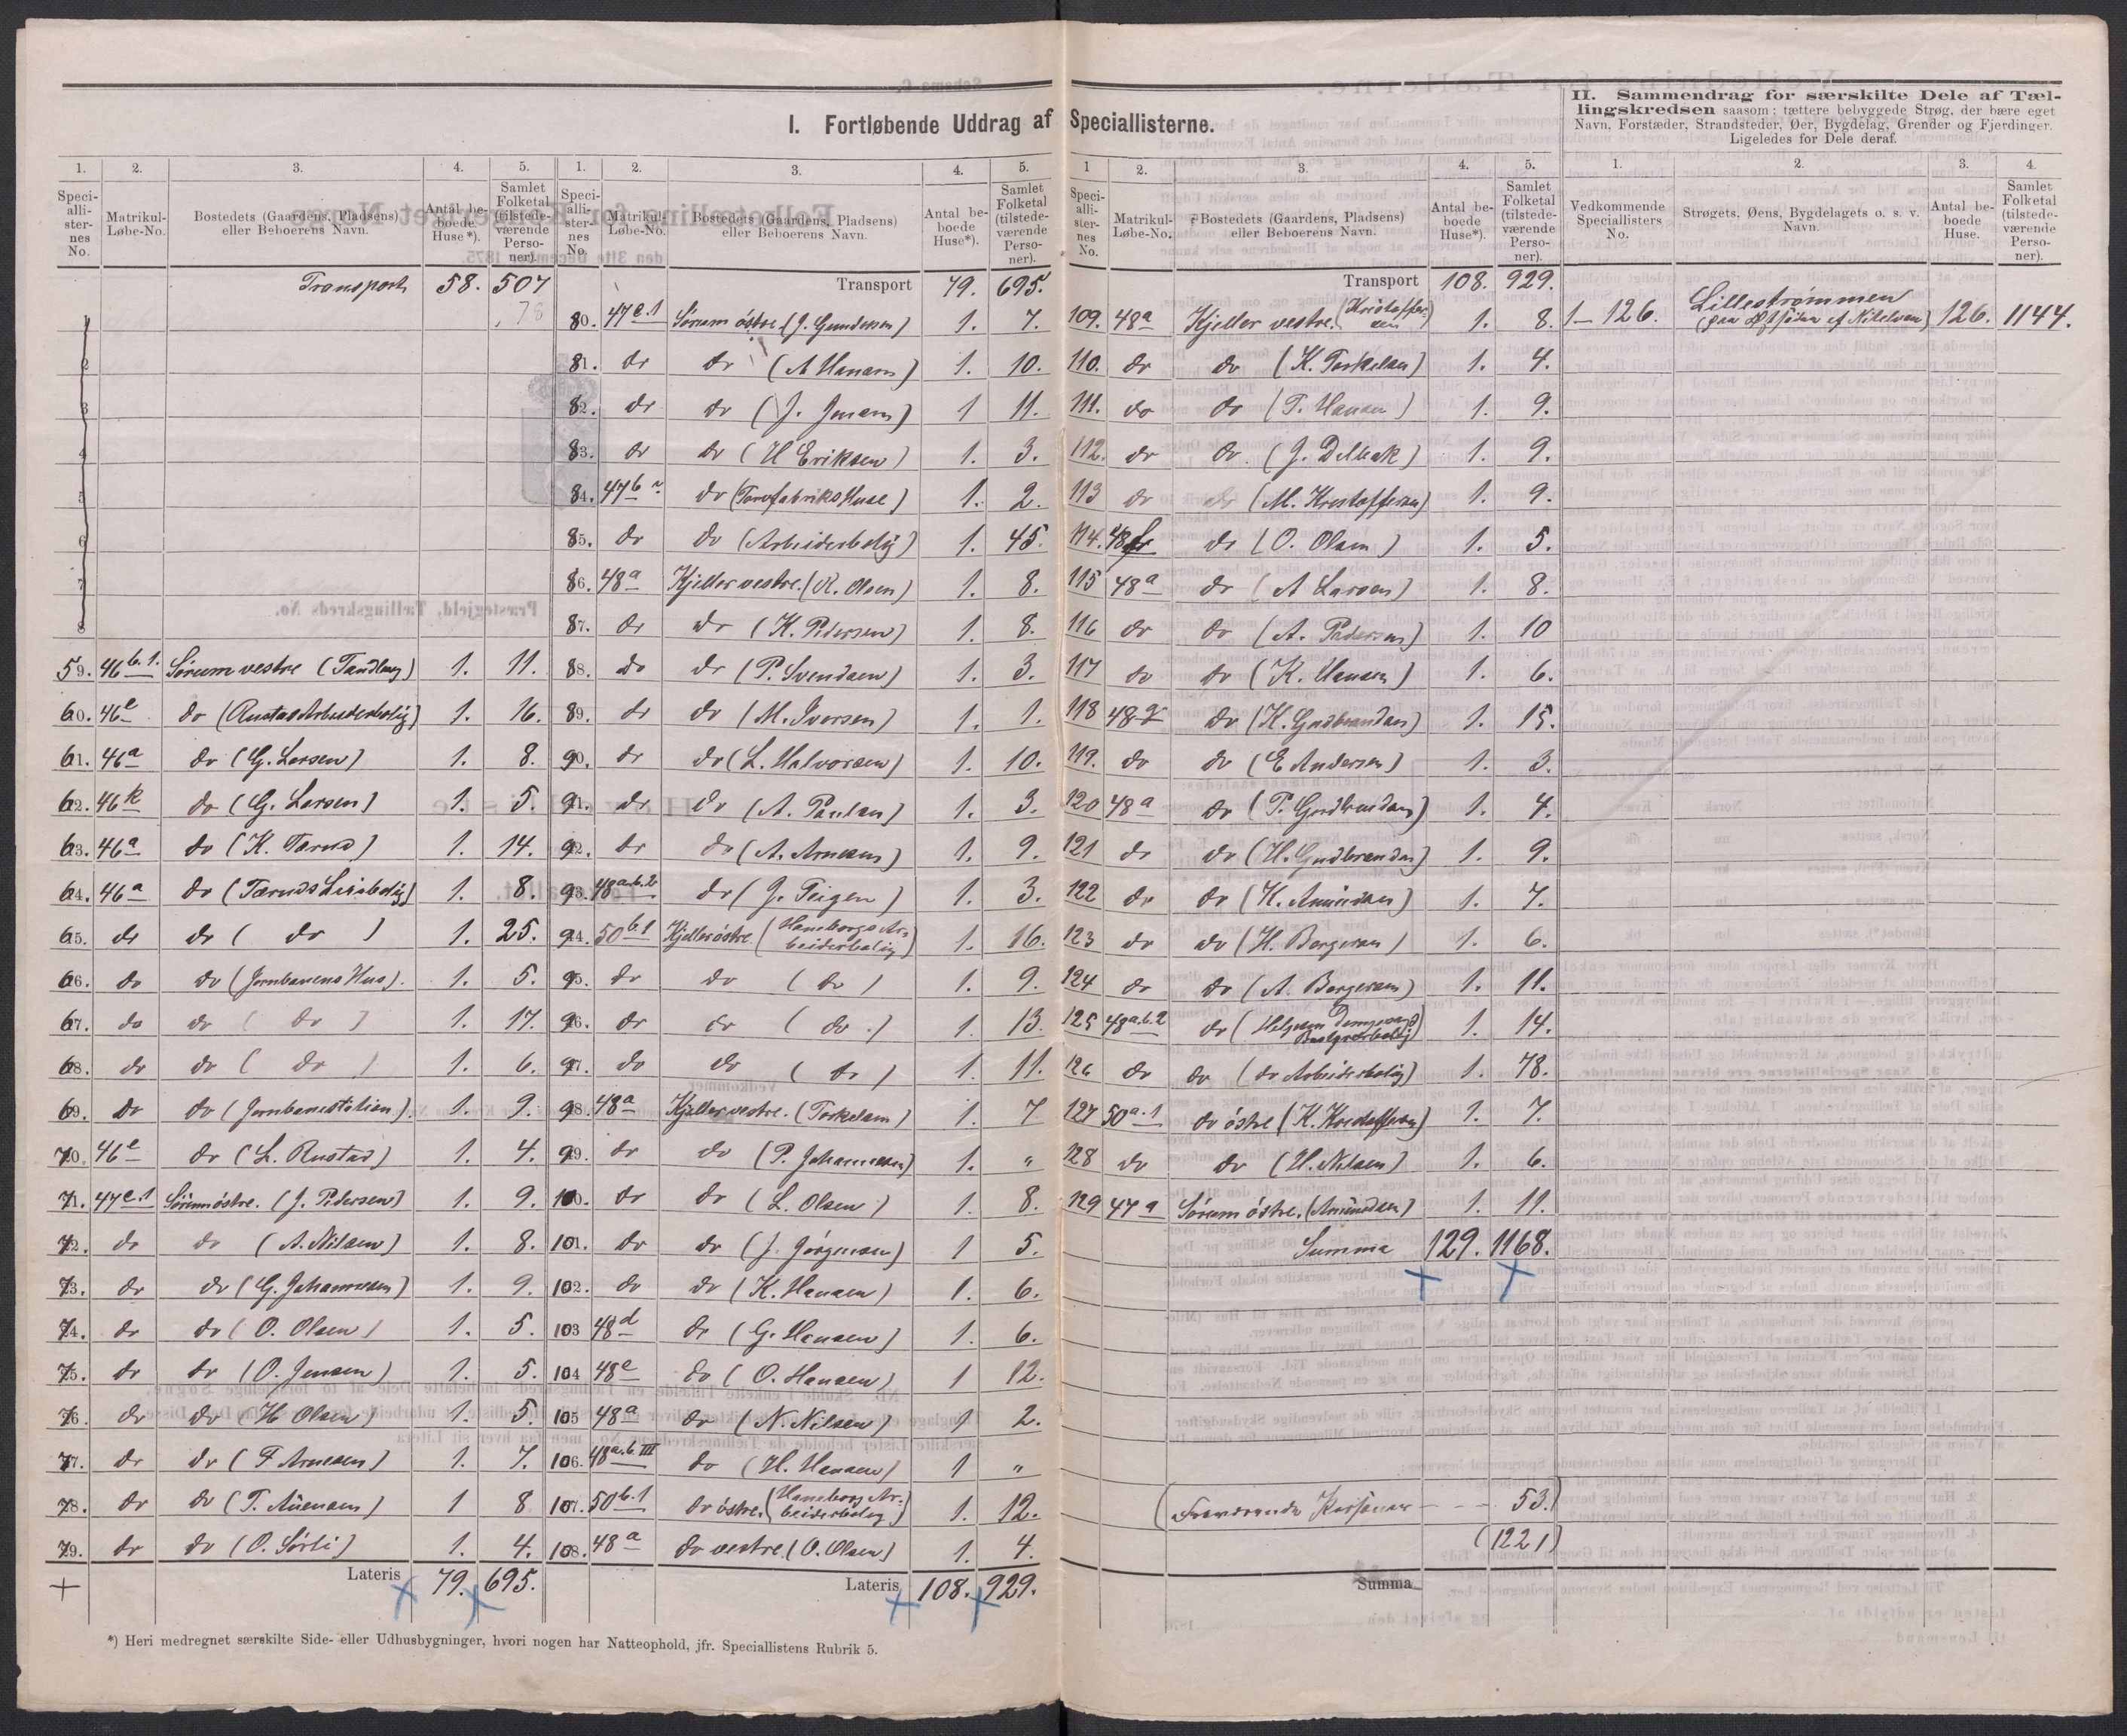 I. Fortløbende Uddrag af Speciallisterne.
1. 2. 3. 4. 5.
Speciallisternes No. Matrikul-Løbe-No. Bostedets (Gaardens, Pladsens) eller Beboerens Navn. Antal beboede Huse*). Samlet Folketal (tilstedeværende Personer).
Transport 58. 507
59. 46 b.1. Sørum vestre (Tandberg) 1. 11.
60. 46 e do (Rustas Arbeiderbolig) 1. 16.
61. 46a do (G. Larsen) 1. 8.
62. 46 k do (G. Larsen) 1. 5.
63. 46a do (K. Tærud) 1. 14.
64. 46a do (Tæruds Leiebolig) 1. 8.
65. do do ( do ) 1. 25.
66. do do (Jernbanens Hus). 1. 5.
67. do do ( do ) 1. 17.
68. do do ( do ) 1. 6.
69. do do (Jernbanestation). 1. 9.
70. 46 e do (L. Rustad) 1. 4.
71. 47 e.1 Sørum østre. (J. Pedersen) 1. 9.
72. do do (A. Nilsen) 1. 8.
73. do do (G. Johannesen) 1. 9.
74. do do (O. Olsen) 1. 5.
75. do do (O. Jensen) 1. 5.
76. do do (H Olsen) 1. 5.
77. do do (F Arnesen) 1. 7.
78. do do (T. ) 1 8
79. do do (O. Sørli) 1. 4.
Lateris 79. 695.
*) Heri medregnet særskilte Side- eller Udhusbygninger, hvori nogen har Natteophold, jfr. Speciallistens Rubrik 5.
1. 2. 3. 4. 5.
Speciallisternes No. Matrikul-Løbe-No. Bostedets (Gaardens, Pladsens) eller Beboerens Navn. Antal beboede Huse*). Samlet Folketal (tilstedeværende Personer).
Transport 79. 695.
80. 47 e.1 Sørum østre (J. Gundersen) 1. 7.
81. do do (A Hansen) 1. 10.
82. do do (J. Jensen) 1 11.
83. do do (H Eriksen) 1. 3.
84. 47 b do (Torvfabriks Huse) 1. 2.
85. do do (Arbeiderbolig) 1. 45.
86. 48a Kjeller vestre. (R. Olsen) 1. 8.
87. do do (K. Pedersen) 1. 8.
88. do do (P. Svendsen) 1. 3.
89. do do (M. Iversen) 1. 1.
90. do do (L. Halvorsen) 1. 10.
91. do do (A. Paulsen) 1. 3.
92. do do (A. Arnesen) 1. 9.
93. 48a.b.2 do (J. Teigen) 1. 3.
94. 50 b.1 Kjeller østre. (Haneborgs Arbeiderbolig) 1. 16.
95. do do ( do ) 1. 9.
96. do do ( do ) 1. 13.
97. do do ( do ) 1. 11.
98. 48a Kjeller vestre. (Torkelsen) 1. 7
99. do do (P. Johannesen) 1. "
100. do do (L. Olsen) 1. 8.
101. do do (J. Jørgensen) 1 5.
102. do do (K. Hansen) 1. 6.
103 48d do (G. Hansen) 1. 6.
104 48e do (O. Hansen) 1 12.
105 48a do (N. Nilsen) 1 2.
106. 48a.b.III do (H. Hansen) 1 "
107. 50 b.1 do østre. (Haneborgs Arbeiderbolig) 1. 12.
108. 48a do vestre (O. Olsen) 1. 4.
Lateris 108. 929.
1 2. 3. 4. 5.
Speciallisternes No. Matrikul-Løbe-No. Bostedets (Gaardens, Pladsens) eller Beboerens Navn. Antal beboede Huse*). Samlet Folketal (tilstedeværende Personer).
Transport 108. 929.
109. 48a Kjeller vestre. (Kristoffersen) 1. 8.
110. do do (K. Torkelsen) 1. 4.
111. do do (T. Hansen) 1. 9.
112. do do. (J. Delbak) 1. 9.
113 do do (M. Kristoffersen) 1. 9.
114. 48 do (O. Olsen) 1. 5.
115 48a do (A Larsen) 1. 8.
116 do do (A. Pedersen) 1. 10
117 do do (K. Hansen) 1. 6.
118 48 g do (K. Gudbrandsen) 1. 15.
119. do do (E Andersen) 1. 3.
120 48a do (P. Gudbrandsen) 1. 4.
121 do do (H. Gudbrandsen) 1. 9.
122 do do (K. Amundsen) 1. 7.
123 do do (H. Bergersen) 1. 6.
124 do do (A. Bergersen) 1. 11.
125 48a.b.2 do (Helgesen Dampsag Bestyrerbolig) 1. 14.
126 do do (do Arbeiderbolig) 1. 78.
127 50a.1 do østre (K. Kristoffersen) 1. 7.
128 do do (H. Nilsen) 1. 6.
129 47a Sørum østre. (Amundsen) 1. 11.
Summa 129. 1168.
(Fraværende Personer - - - 53.)
(1221)
Summa
II. Sammendrag for særskilte Dele af Tællingskredsen saasom: tættere bebyggede Strøg, der bære eget Navn, Forstæder, Strandsteder, Øer, Bygdelag, Grender og Fjerdinger. Ligeledes for Dele deraf.
1. 2. 3. 4.
Vedkommende Speciallisters No. Strøgets, Øens, Bygdelagets o. s. v. Navn. Antal beboede Huse. Samlet Folketal (tilstedeværende Personer).
1 – 126. Lillestrømmen (paa Østsiden af Nitelven) 126. 1144.